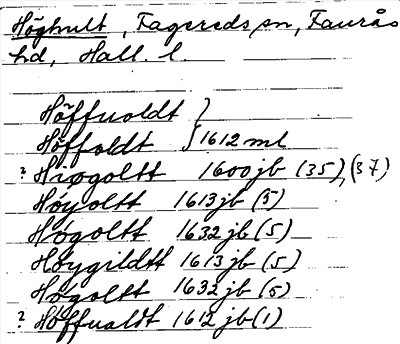 Höghult, Fagereds sn, Faurås
hd, Hall. l.
Höffuoldt }
Höffoldt } 1612 ml
? Hiøgoltt 1600 jb (35), (37)
Høyoltt 1613 jb (5)
Høgoltt 1632 jb (5)
Høygildtt 1613 jb (5)
Høgoltt 1632 jb (5)
? Höffualdt 1612 jb (1)